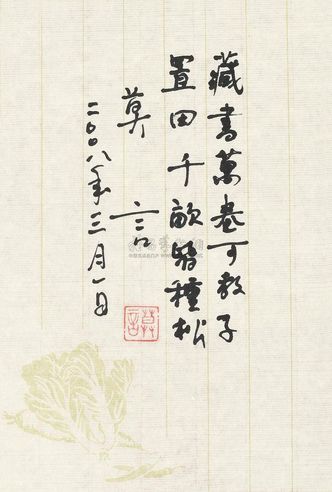 藏書萬卷可教子
置田千畝種松
莫言
二〇〇八年三月一日
莫言